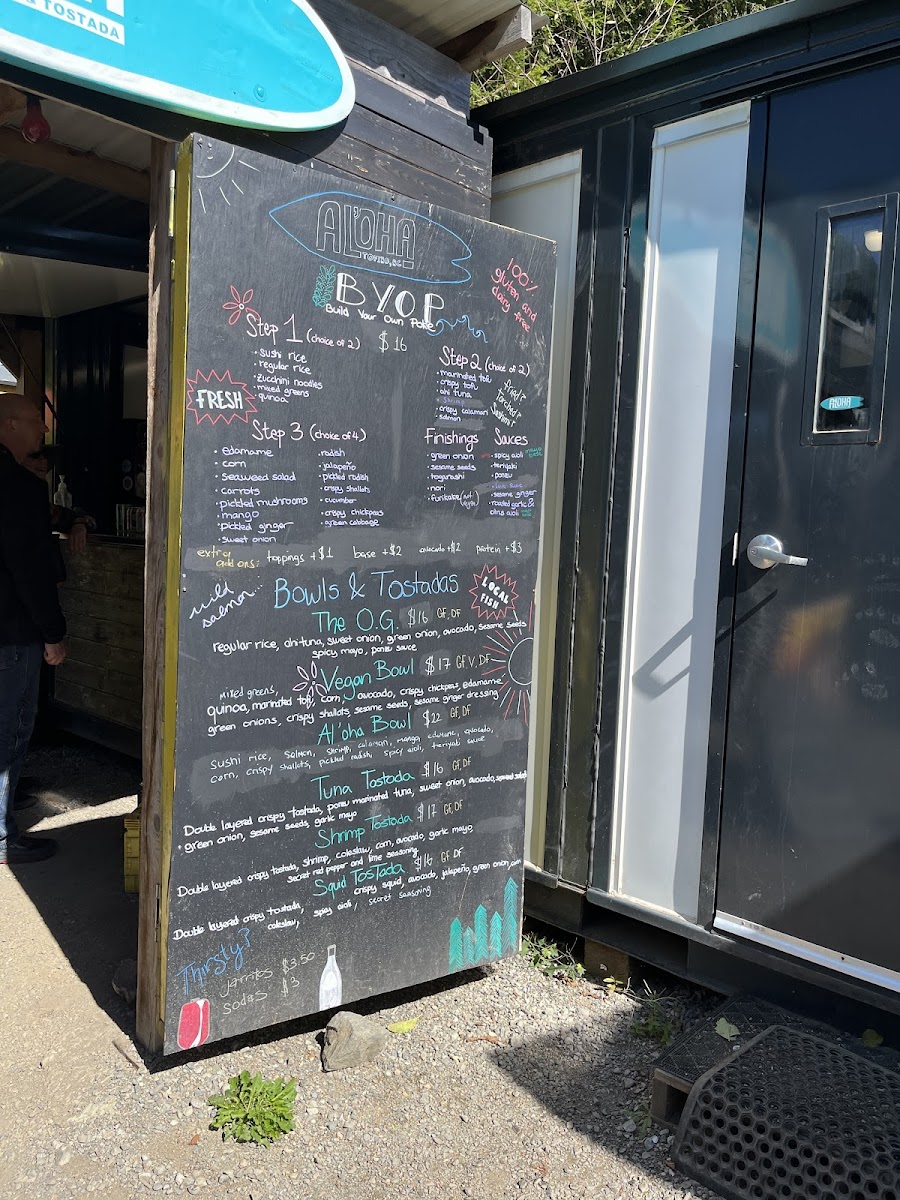 & TOSTADA
AL'OHA
TOFINO, BC
BYOP
Build Your Own Poke
100%
gluten and
dairy free
Step 1 (choice of 2) $16
• sushi rice
• regular rice
• zucchini noodles
• mixed greens
• quinoa
FRESH
Step 2 (choice of 2)
• marinated tofu
• crispy tofu
• ahi tuna
• shrimp
• crispy calamari
• salmon
Step 3 (choice of 4)
• edamame
• corn
• seaweed salad
• carrots
• pickled mushrooms
• mango
• pickled ginger
• sweet onion
• radish
• jalapeño
• pickled radish
• crispy shallots
• cucumber
• crispy chickpeas
• asian cabbage
Finishings
• green onion
• sesame seeds
• togarashi
• nori
• furikake (not vegan)
Sauces
• spicy aioli
• teriyaki
• ponzu
• sesame ginger
• roasted garlic &
citrus aioli
extra add ons: toppings +$1 base +$2 avocado +$2 protein +$3
wild
salmon...
Bowls & Tostadas
LOCAL
FISH
The O.G. $16 GF, DF
regular rice, ahi-tuna, sweet onion, green onion, avocado, sesame seeds
spicy mayo, ponzu sauce
Vegan Bowl $17 GF, V, DF
mixed greens,
quinoa, marinated tofu, corn, avocado, crispy chickpeas, edamame
green onions, crispy shallots, sesame seeds, sesame ginger dressing
Al'oha Bowl $22 GF, DF
sushi rice, salmon, shrimp, calamari, mango, edamame, avocado,
corn, crispy shallots, pickled radish, spicy aioli, teriyaki sauce
Tuna Tostada $16 GF, DF
Double layered crispy tostada, ponzu marinated tuna, sweet onion, avocado, seaweed salad
• green onion, sesame seeds, garlic mayo
Shrimp Tostada $17 GF, DF
Double layered crispy tostada, shrimp, coleslaw, corn, avocado, garlic mayo,
secret red pepper and lime seasoning
Squid Tostada $16 GF, DF
Double layered crispy tostada, crispy squid, avocado, jalapeño, green onion, corn
coleslaw, spicy aioli, secret seasoning
Thirsty?
jarritos $3.50
sodas $3
ALOHA